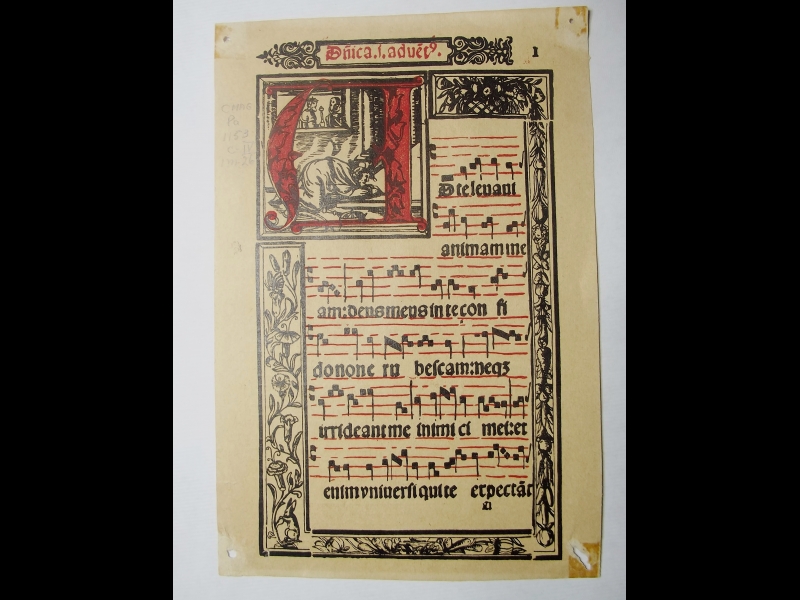 Dñica.i.advẽtꝰ.
1
A
D te levavi
animam me
am:deus meus in te con fi
do non e ru bescam:neqꝫ
irrideant me inimi ci mei:et
enim vniversi qui te expectãt
a